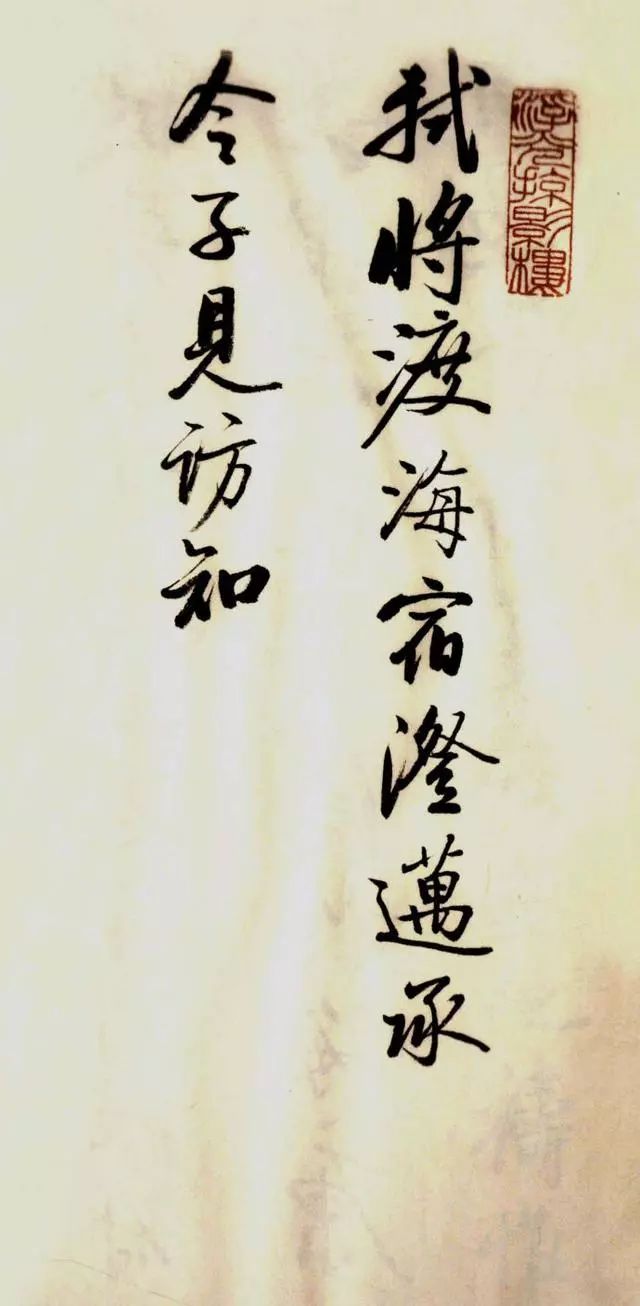 軾將渡海宿澄邁承
令子見訪知